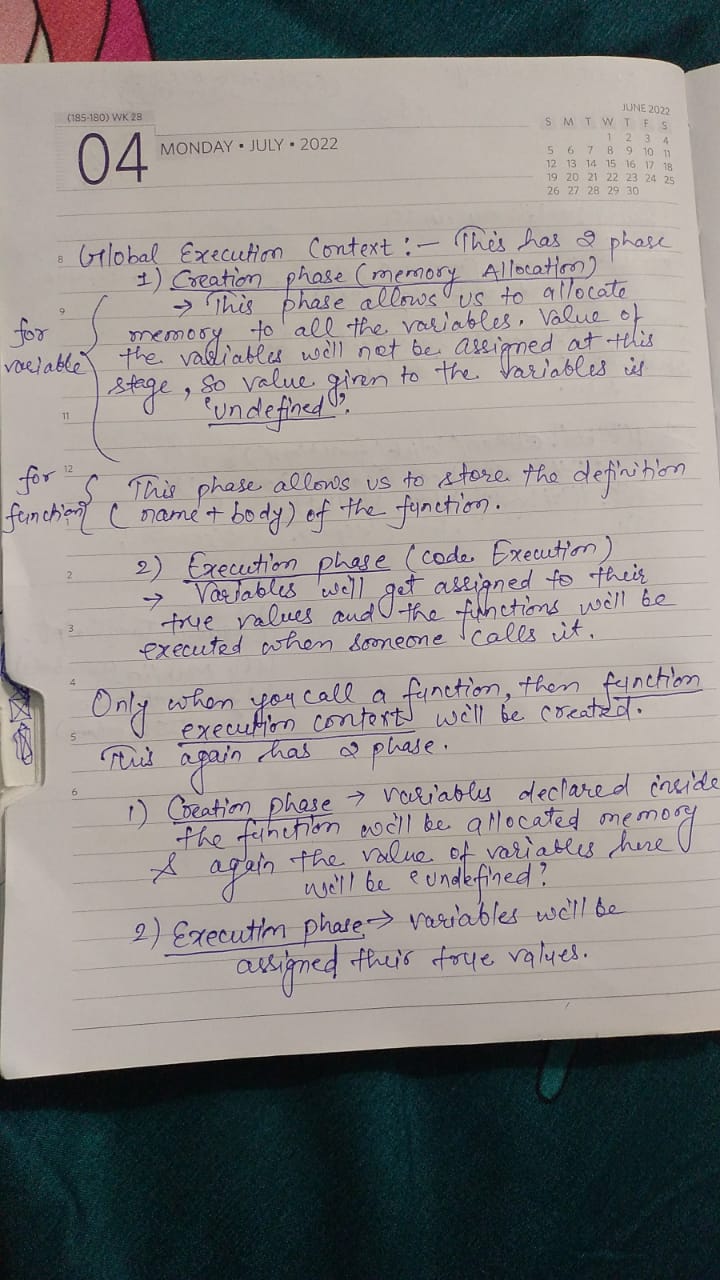 (185-180) WK 28
04 MONDAY • JULY • 2022
JUNE 2022
S M T W T F S
1 2 3 4
5 6 7 8 9 10 11
12 13 14 15 16 17 18
19 20 21 22 23 24 25
26 27 28 29 30
8 Global Execution Context :- This has 2 phase
1) Creation phase (memory Allocation)
9 → This phase allows us to allocate
for memory to all the variables. Value of
variable the variables will not be assigned at this
stage, so value given to the variables is
11 'undefined'.
12
for This phase allows us to store the definition
function (name + body) of the function.
2) Execution phase (code Execution)
2 → Variables will get assigned to their
3 true values and the functions will be
executed when someone calls it.
4
Only when you call a function, then function
5 execution context will be created.
This again has 2 phase.
6
1) Creation phase → variables declared inside
the function will be allocated memory
& again the value of variables here
will be 'undefined'
2) Execution phase → variables will be
assigned their true values.